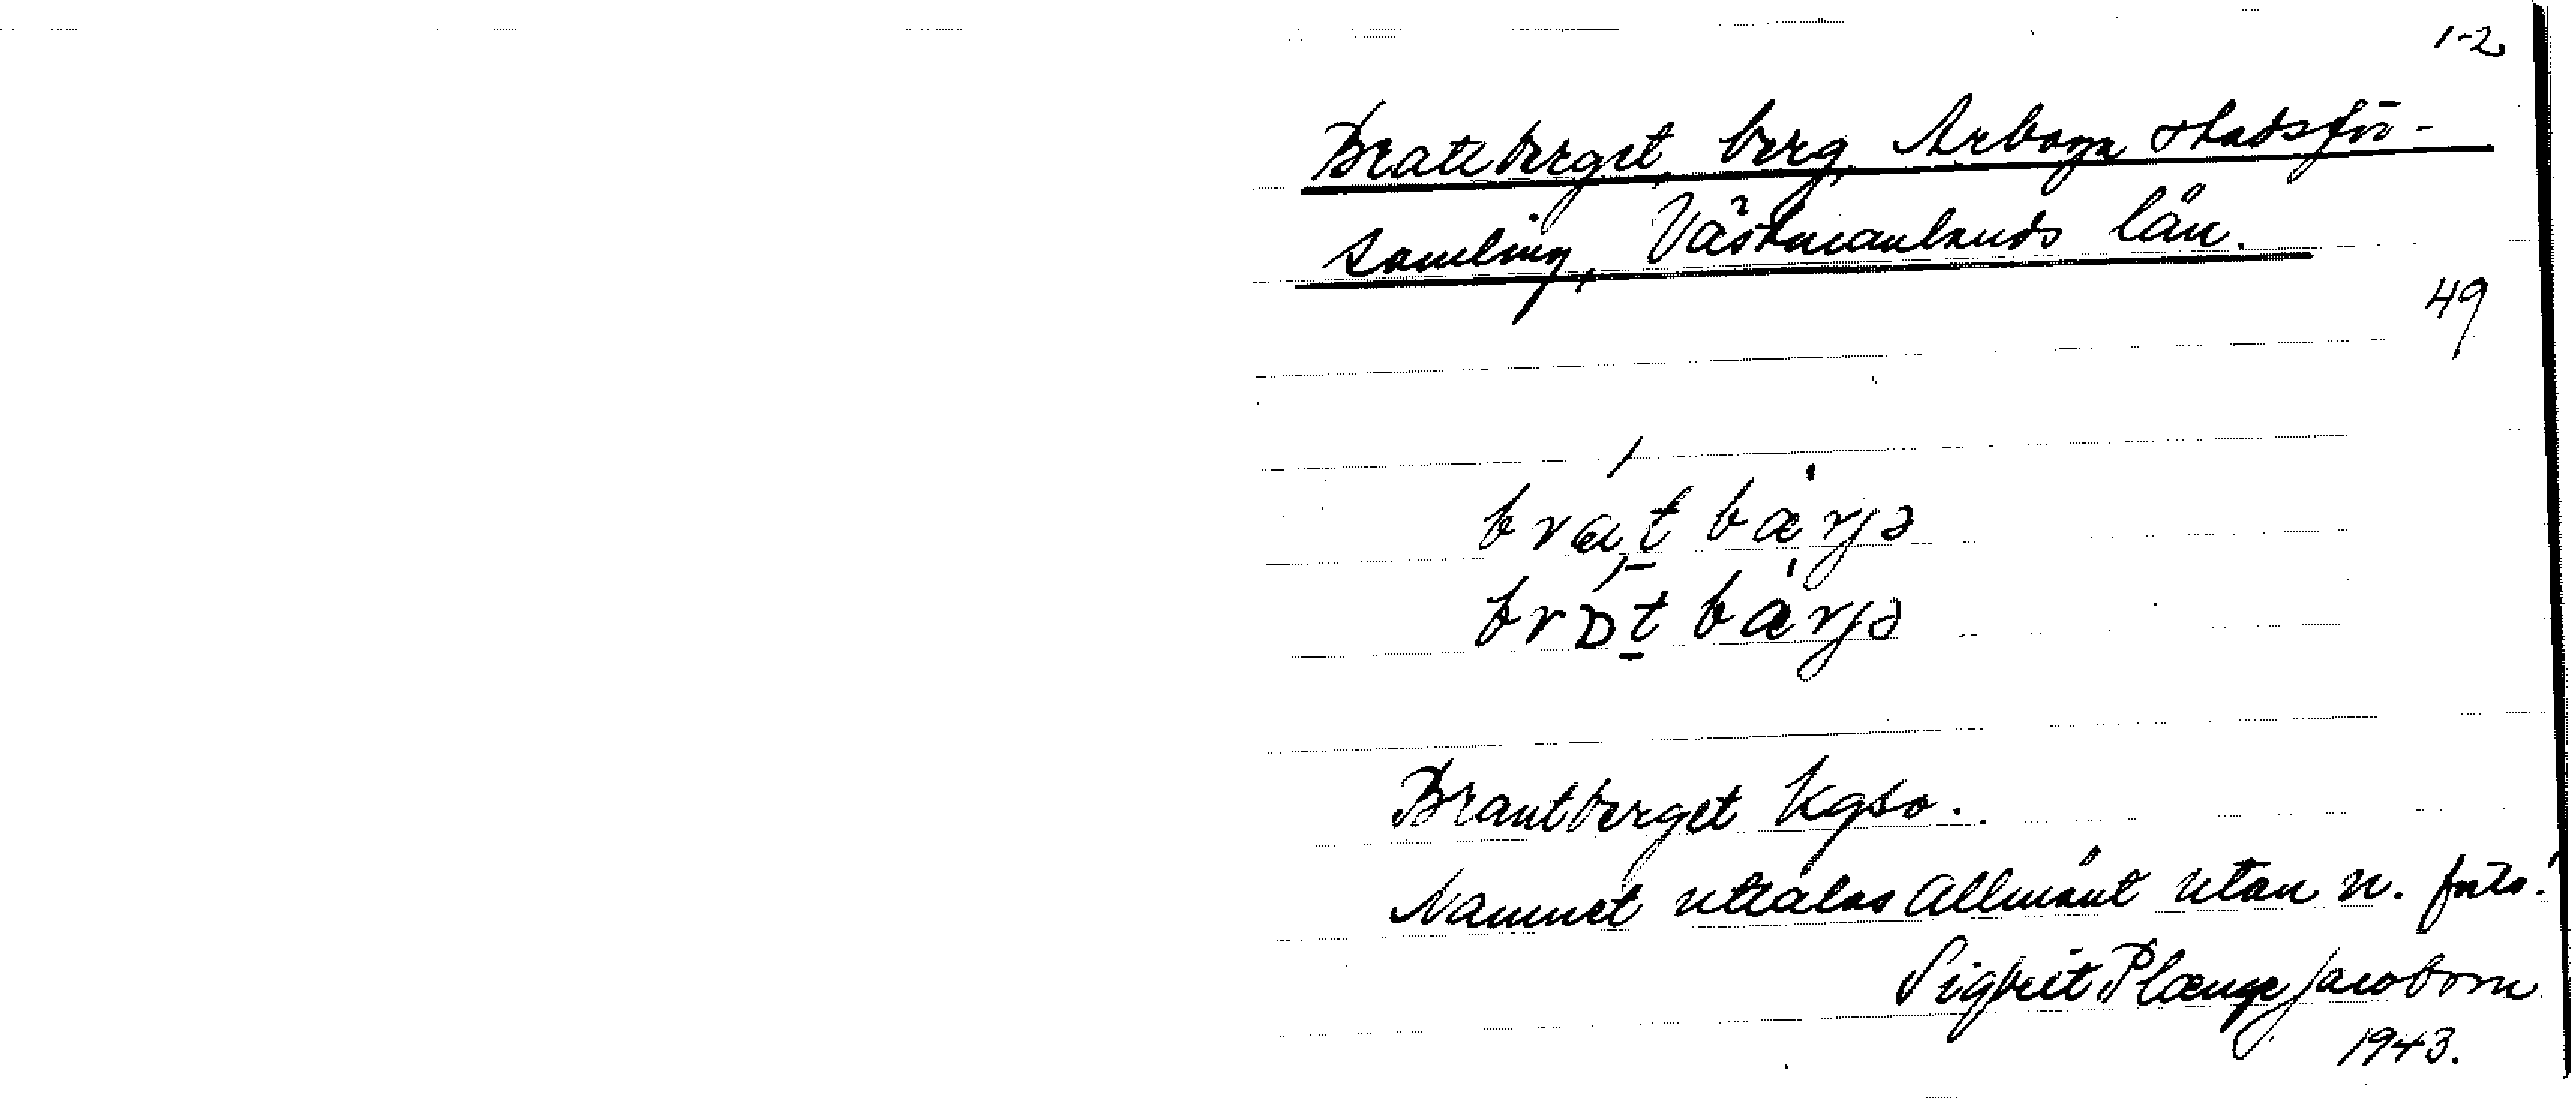 1-2
Bratberget, berg, Arboga stadsför-
samling, Västmanlands län.
49
bra,t bärjə
brɒ,t bärjə
Brantberget Kgso.
Namnet uttalas allmänt utan n. forts.
Sigbrit Plænge Jacobson
1943.